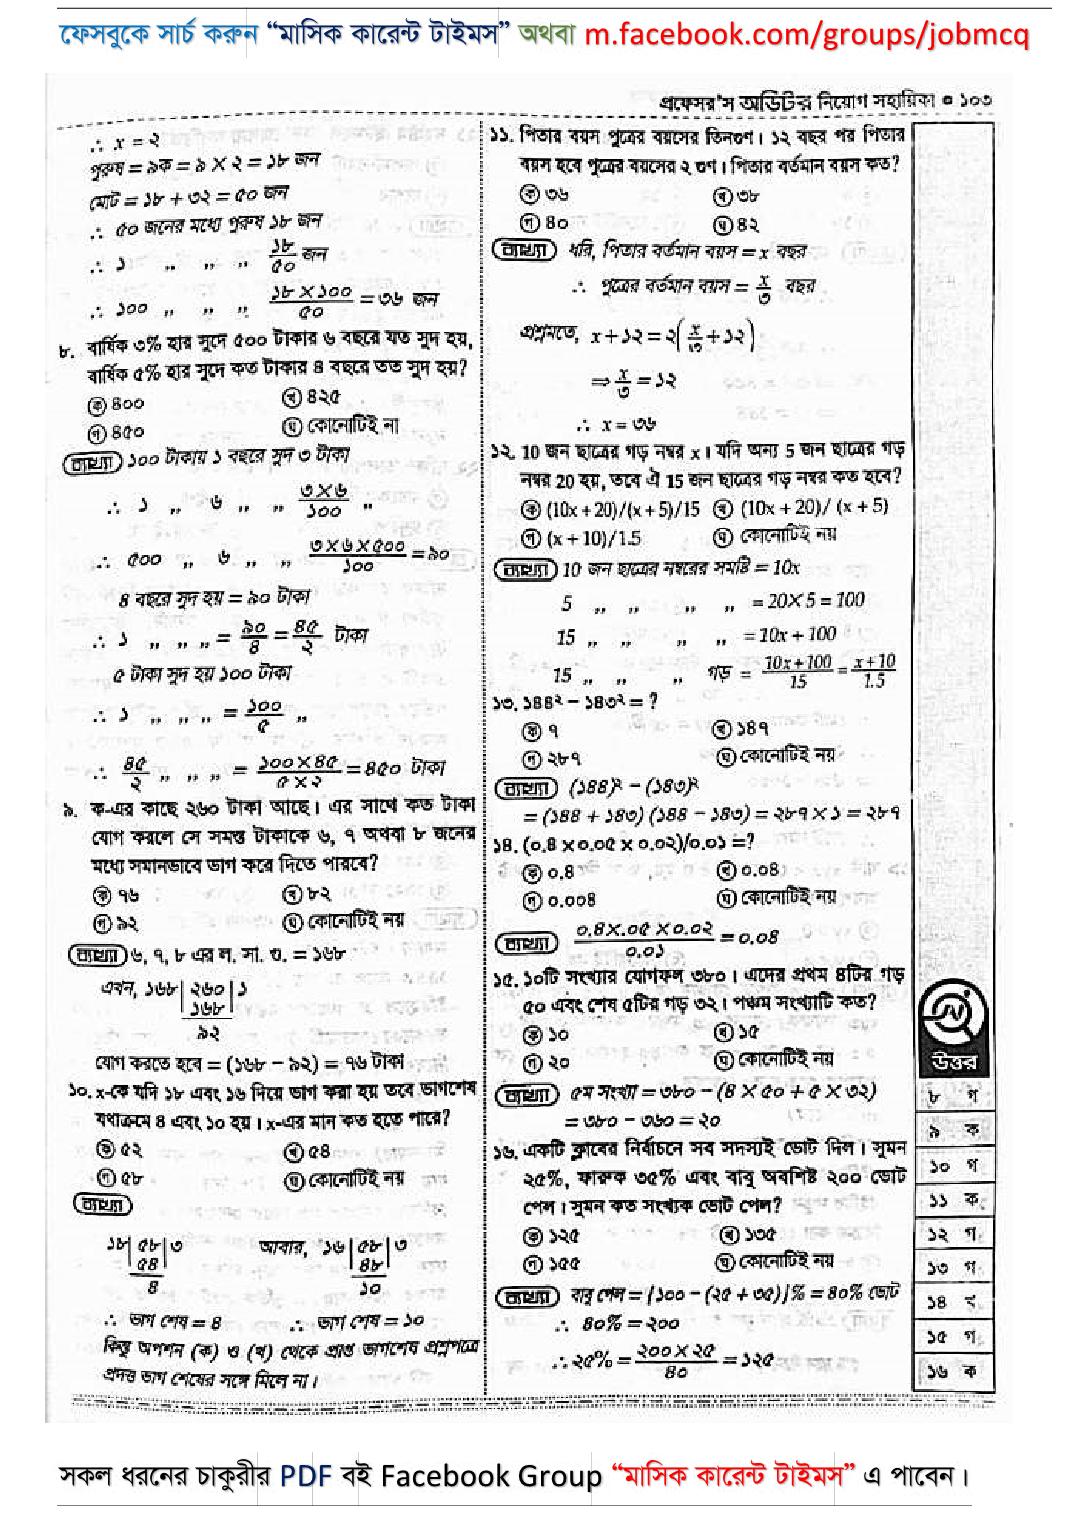 ফেসবুকে সার্চ করুন “মাসিক কারেন্ট টাইমস” অথবা m.facebook.com/groups/jobmcq
প্রফেসর'স অডিটর নিয়োগ সহায়িকা ● ১০৩
∴ x = ২
পুরুষ = ৯ক = ৯ × ২ = ১৮ জন
মোট = ১৮ + ৩২ = ৫০ জন
∴ ৫০ জনের মধ্যে পুরুষ ১৮ জন
∴ ১ ,, ,, ,, ১৮/৫০ জন
∴ ১০০ ,, ,, ,, (১৮ × ১০০)/৫০ = ৩৬ জন
৮. বার্ষিক ৩% হার সুদে ৫০০ টাকার ৬ বছরে যত সুদ হয়,
বার্ষিক ৫% হার সুদে কত টাকার ৪ বছরে তত সুদ হয়?
ক ৪০০ খ ৪২৫
গ ৪৫০ ঘ কোনোটিই না
ব্যাখ্যা ১০০ টাকায় ১ বছরে সুদ ৩ টাকা
∴ ১ ,, ৬ ,, ,, (৩ × ৬)/১০০ ,,
∴ ৫০০ ,, ৬ ,, ,, (৩ × ৬ × ৫০০)/১০০ = ৯০
৪ বছরে সুদ হয় = ৯০ টাকা
∴ ১ ,, ,, ,, = ৯০/৪ = ৪৫/২ টাকা
৫ টাকা সুদ হয় ১০০ টাকা
∴ ১ ,, ,, ,, = ১০০/৫ ,,
∴ ৪৫/২ ,, ,, ,, = (১০০ × ৪৫)/(৫ × ২) = ৪৫০ টাকা
৯. ক-এর কাছে ২৬০ টাকা আছে। এর সাথে কত টাকা
যোগ করলে সে সমস্ত টাকাকে ৬, ৭ অথবা ৮ জনের
মধ্যে সমানভাবে ভাগ করে দিতে পারবে?
ক ৭৬ খ ৮২
গ ৯২ ঘ কোনোটিই নয়
ব্যাখ্যা ৬, ৭, ৮ এর ল. সা. গু. = ১৬৮
এখন, ১৬৮ | ২৬০ | ১
১৬৮
৯২
যোগ করতে হবে = (১৬৮ − ৯২) = ৭৬ টাকা
১০. x-কে যদি ১৮ এবং ১৬ দিয়ে ভাগ করা হয় তবে ভাগশেষ
যথাক্রমে ৪ এবং ১০ হয়। x-এর মান কত হতে পারে?
ক ৫২ খ ৫৪
গ ৫৮ ঘ কোনোটিই নয়
ব্যাখ্যা
১৮ | ৫৮ | ৩ আবার, ১৬ | ৫৮ | ৩
৫৪ ৪৮
৪ ১০
∴ ভাগ শেষ = ৪ ∴ ভাগ শেষ = ১০
কিন্তু অপশন (ক) ও (খ) থেকে প্রাপ্ত ভাগশেষ প্রশ্নপত্রে
প্রদত্ত ভাগ শেষের সঙ্গে মিলে না।
১১. পিতার বয়স পুত্রের বয়সের তিনগুণ। ১২ বছর পর পিতার
বয়স হবে পুত্রের বয়সের ২ গুণ। পিতার বর্তমান বয়স কত?
ক ৩৬ খ ৩৮
গ ৪০ ঘ ৪২
ব্যাখ্যা ধরি, পিতার বর্তমান বয়স = x বছর
∴ পুত্রের বর্তমান বয়স = x/৩ বছর
প্রশ্নমতে, x + ১২ = ২(x/৩ + ১২)
⇒ x/৩ = ১২
∴ x = ৩৬
১২. 10 জন ছাত্রের গড় নম্বর x। যদি অন্য 5 জন ছাত্রের গড়
নম্বর 20 হয়, তবে ঐ 15 জন ছাত্রের গড় নম্বর কত হবে?
ক (10x + 20)/(x + 5)/15 খ (10x + 20)/ (x + 5)
গ (x + 10)/1.5 ঘ কোনোটিই নয়
ব্যাখ্যা 10 জন ছাত্রের নম্বরের সমষ্টি = 10x
5 ,, ,, ,, ,, = 20×5 = 100
15 ,, ,, ,, ,, = 10x + 100
15 ,, ,, ,, গড় = (10x+100)/15 = (x+10)/1.5
১৩. ১৪৪² − ১৪৩² = ?
ক ৭ খ ১৪৭
গ ২৮৭ ঘ কোনোটিই নয়
ব্যাখ্যা (১৪৪)² − (১৪৩)²
= (১৪৪ + ১৪৩) (১৪৪ − ১৪৩) = ২৮৭ × ১ = ২৮৭
১৪. (০.৪ × ০.০৫ × ০.০২)/০.০১ =?
ক ০.৪ খ ০.০৪
গ ০.০০৪ ঘ কোনোটিই নয়
ব্যাখ্যা (০.৪×.০৫ × ০.০২)/০.০১ = ০.০৪
১৫. ১০টি সংখ্যার যোগফল ৩৮০। এদের প্রথম ৪টির গড়
৫০ এবং শেষ ৫টির গড় ৩২। পঞ্চম সংখ্যাটি কত?
ক ১০ খ ১৫
গ ২০ ঘ কোনোটিই নয়
ব্যাখ্যা ৫ম সংখ্যা = ৩৮০ − (৪ × ৫০ + ৫ × ৩২)
= ৩৮০ − ৩৬০ = ২০
১৬. একটি ক্লাবের নির্বাচনে সব সদস্যই ভোট দিল। সুমন
২৫%, ফারুক ৩৫% এবং বাবু অবশিষ্ট ২০০ ভোট
পেল। সুমন কত সংখ্যক ভোট পেল?
ক ১২৫ খ ১৩৫
গ ১৫৫ ঘ কোনোটিই নয়
ব্যাখ্যা বাবু পেল = [১০০ − (২৫ + ৩৫)]% = ৪০% ভোট
∴ ৪০% = ২০০
∴ ২৫% = (২০০ × ২৫)/৪০ = ১২৫
উত্তর
৮ গ
৯ ক
১০ গ
১১ ক
১২ গ
১৩ গ
১৪
১৫ গ
১৬ ক
সকল ধরনের চাকুরীর PDF বই Facebook Group “মাসিক কারেন্ট টাইমস” এ পাবেন।